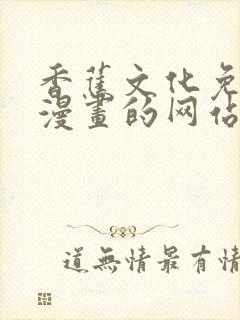 香蕉文化免
漫畫的网佔
道無情最有情